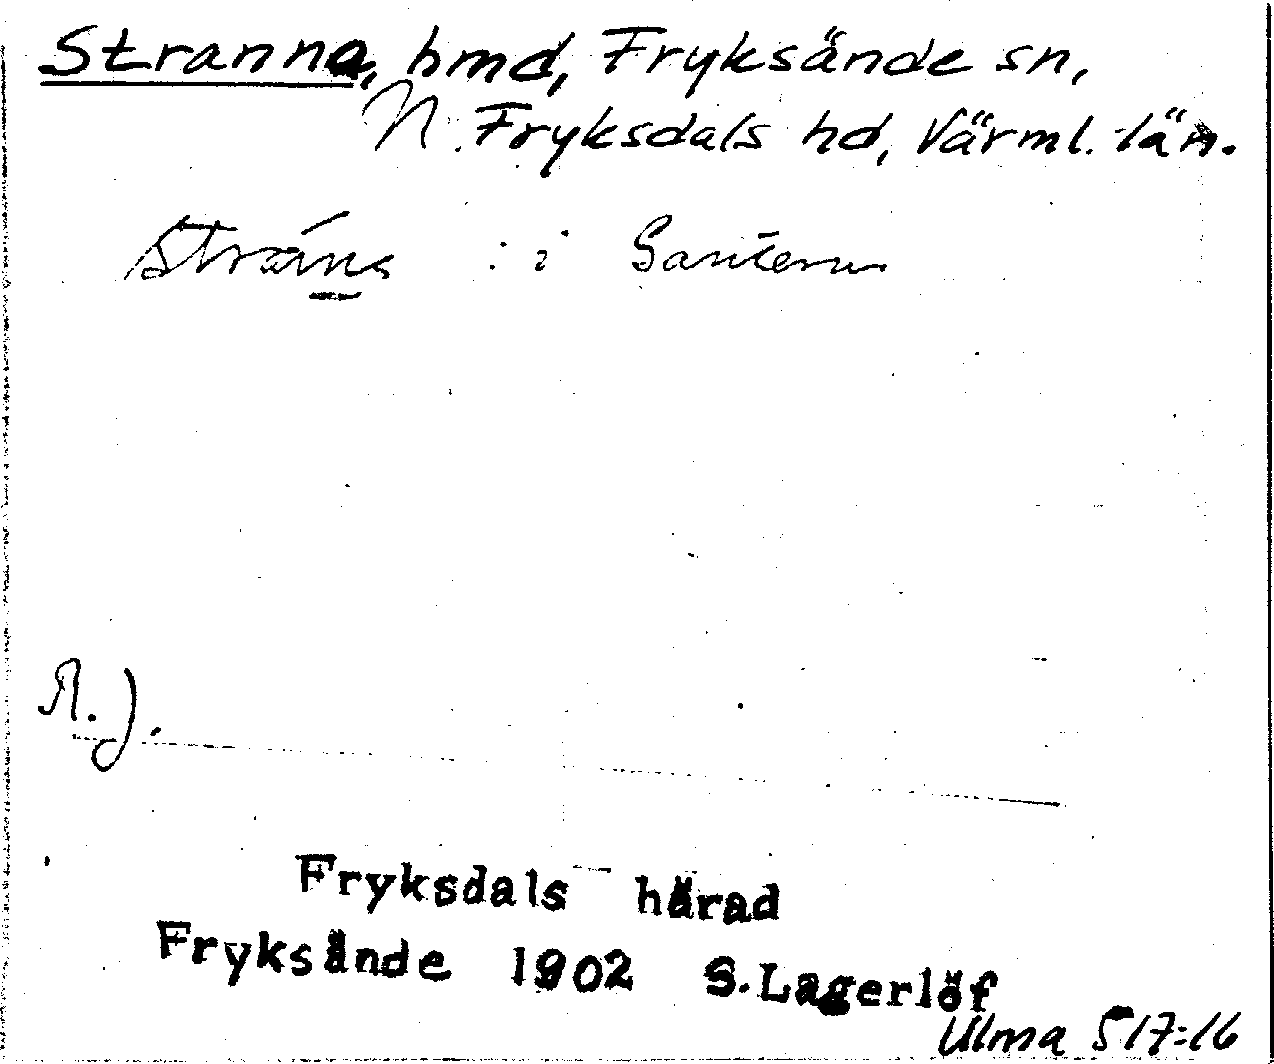 Stranna, hmd, Fryksände sn,
N. Fryksdals hd, Värml. län.
: i
A. J.
Fryksdals härad
Fryksände 1902 S. Lagerlöf
Ulma 517:16